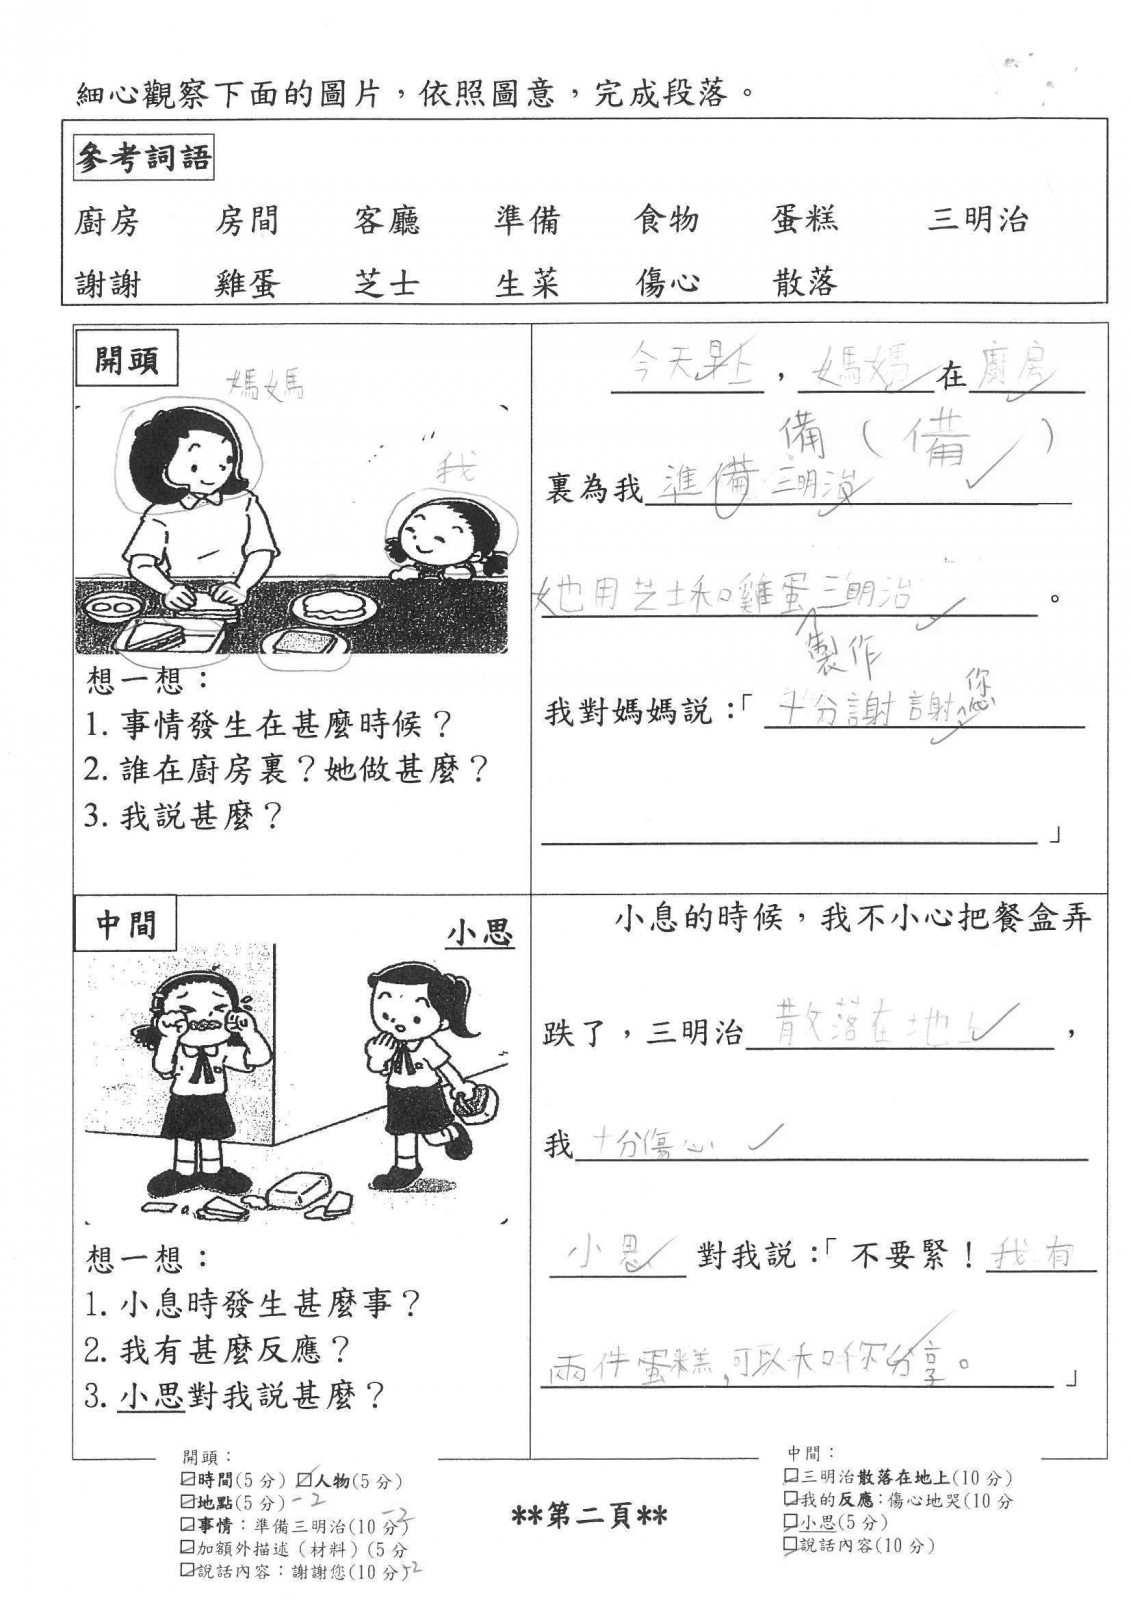 細心觀察下面的圖片，依照圖意，完成段落。
參考詞語
廚房 房間 客廳 準備 食物 蛋糕 三明治
謝謝 雞蛋 芝士 生菜 傷心 散落
開頭
媽媽
我
今天早上，媽媽在廚房
備（備）
裏為我準備三明治
她用芝士和雞蛋三明治。
製作
你
我對媽媽說：「十分謝謝您
」
想一想：
1. 事情發生在甚麼時候？
2. 誰在廚房裏？她做甚麼？
3. 我說甚麼？
中間
小思
小息的時候，我不小心把餐盒弄
跌了，三明治散落在地上，
我十分傷心
小思對我說：「不要緊！我有
兩件蛋糕，可以和你分享。」
想一想：
1. 小息時發生甚麼事？
2. 我有甚麼反應？
3. 小思對我說甚麼？
開頭：
時間(5 分) 人物(5 分)
地點(5 分) -2
事情：準備三明治(10 分) -2
加額外描述（材料）(5 分
說話內容：謝謝您(10 分) -2
**第二頁**
中間：
三明治散落在地上(10 分)
我的反應：傷心地哭(10 分
小思(5 分)
說話內容(10 分)